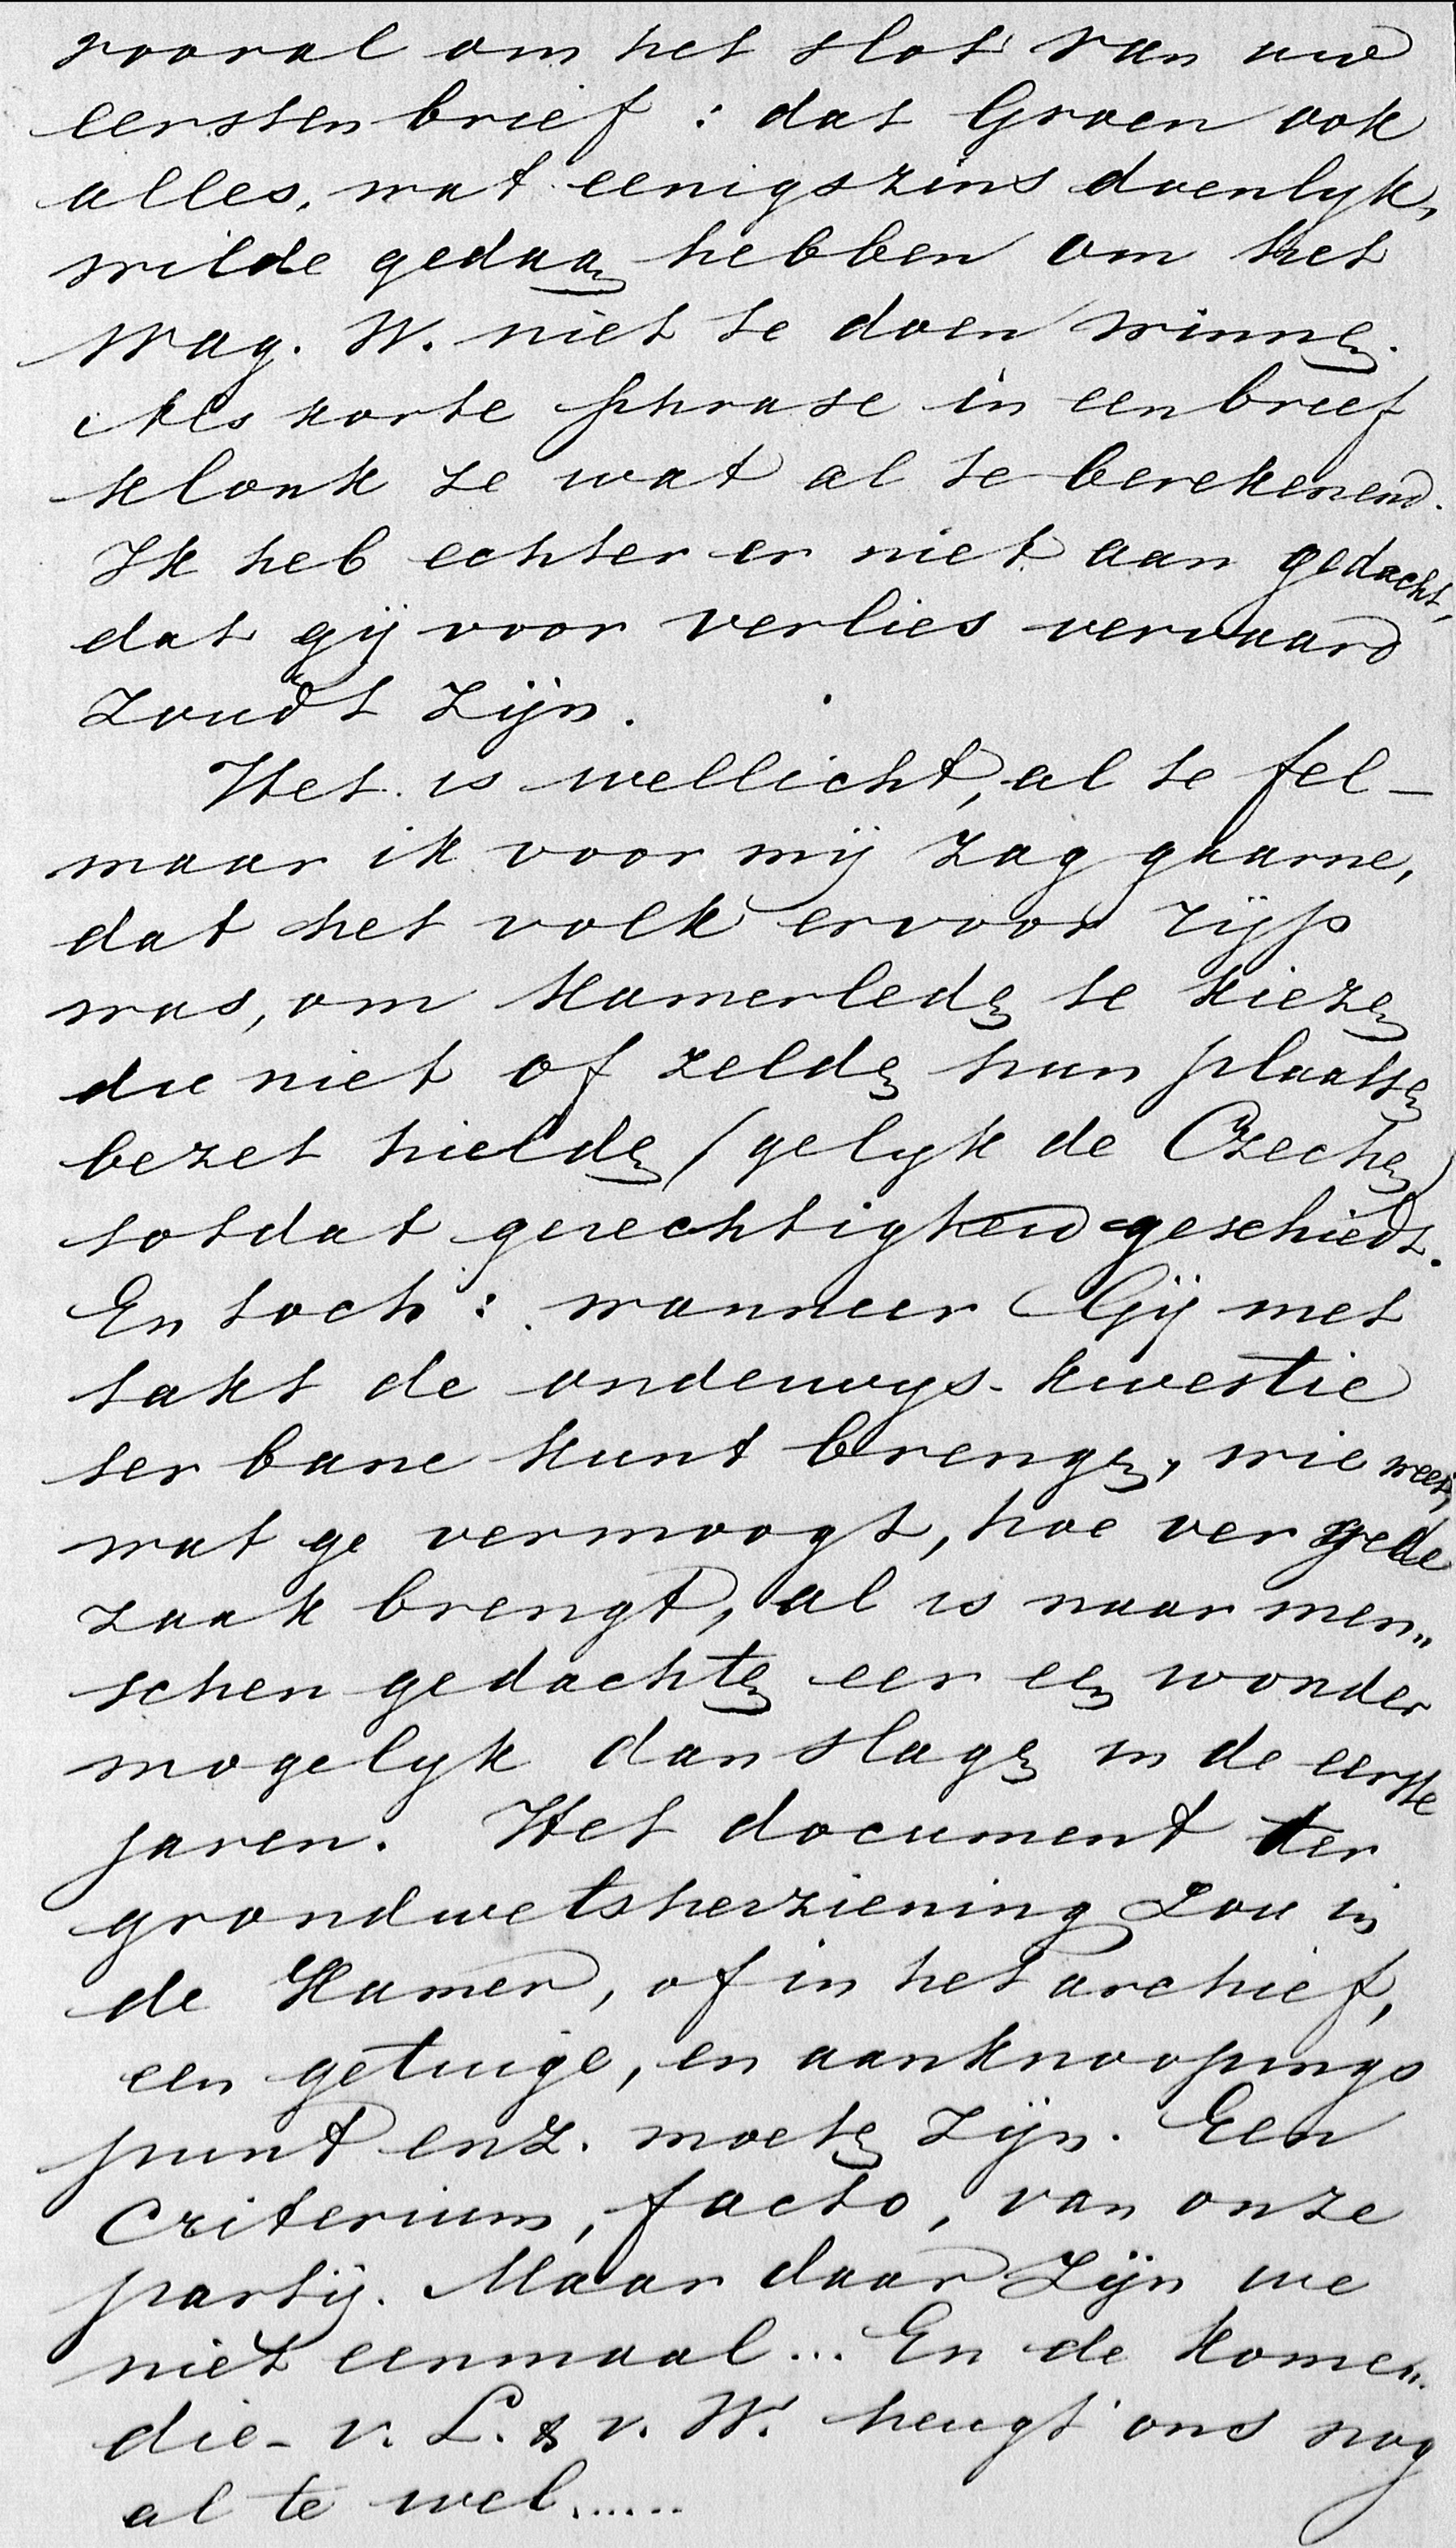 vooral om het slot van uw
eersten brief : dat Groen ook
alles, wat eenigszins doenlyk,
wilde gedaan hebben om het
Wag. W. niet te doen winnen.
Als korte phrase in een brief
klonk ze wat al te berekenend.
Ik heb echter er niet aan gedacht,
dat gij voor verlies vervaard
zoudt zijn.
Het is wellicht, al te fel –
maar ik voor mij zag gaarne,
dat het volk ervoor rijp
was, om Kamerleden te kiezen
die niet of zelden hun plaatsen
bezet hielden (gelyk de Czechen)
totdat gerechtigheid geschiedt.
En toch : wanneer Gij met
takt de onderwys-kwestie
ter bane kunt brengen, wie weet,
wat ge vermoogt, hoe ver ge de
zaak brengt, al is naar men„
schen gedachten eer een wonder
mogelyk dan slagen in de eerste
jaren. Het document ter
grondwetsherziening zou in
de Kamer, of in het archief,
een getuige, en aanknoopings
punt enz. moeten zijn. Een
criterium, facto, van onze
partij. Maar daar zijn we
niet eenmaal... En de komen„
die – v. L. & v. W. heugt ons nog
al te wel......